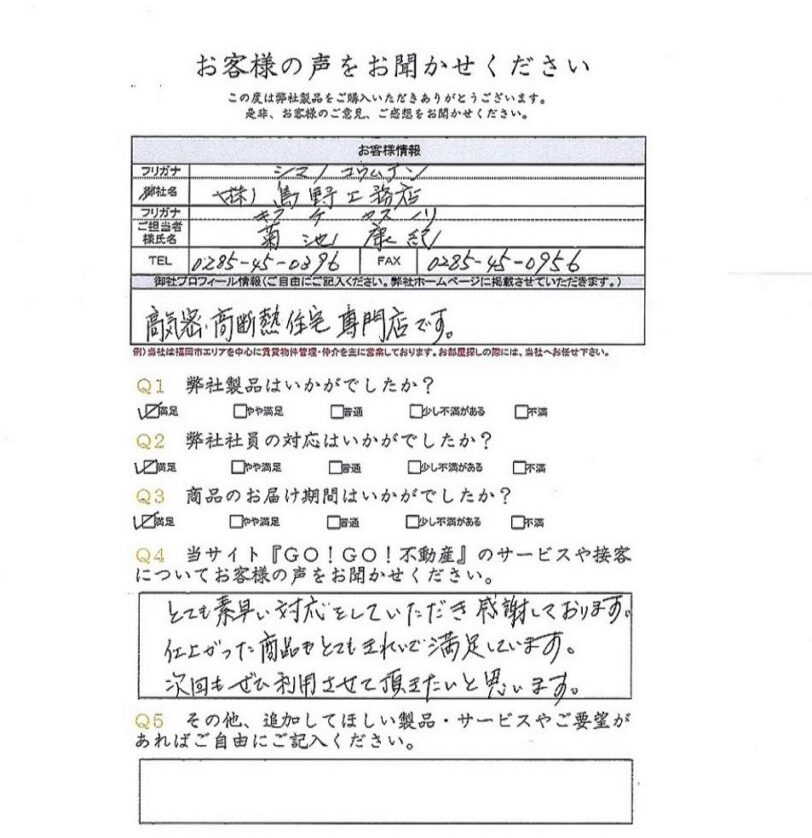 お客様の声をお聞かせください
この度は弊社製品をご購入いただきありがとうございます。
是非、お客様のご意見、ご感想をお聞かせください。
お客様情報
フリガナ シマノコウムテン
弊社名 (株)島野工務店
フリガナ キクチ ヤスノリ
ご担当者様氏名 菊池 康紀
TEL 0285-45-0396 FAX 0285-45-0956
御社プロフィール情報(ご自由にご記入ください。弊社ホームページに掲載させていただきます。)
高気密・高断熱住宅専門店です。
例)当社は福岡市エリアを中心に賃貸物件管理・仲介を主に営業しております。お部屋探しの際には、当社へお任せ下さい。
Q1 弊社製品はいかがでしたか?
☑満足 □やや満足 □普通 □少し不満がある □不満
Q2 弊社社員の対応はいかがでしたか?
☑満足 □やや満足 □普通 □少し不満がある □不満
Q3 商品のお届け期間はいかがでしたか?
☑満足 □やや満足 □普通 □少し不満がある □不満
Q4 当サイト『GO!GO!不動産』のサービスや接客
についてお客様の声をお聞かせください。
とても素早い対応をしていただき感謝しております。
仕上がった商品もとてもきれいで満足しています。
次回もぜひ利用させて頂きたいと思います。
Q5 その他、追加してほしい製品・サービスやご要望が
あればご自由にご記入ください。